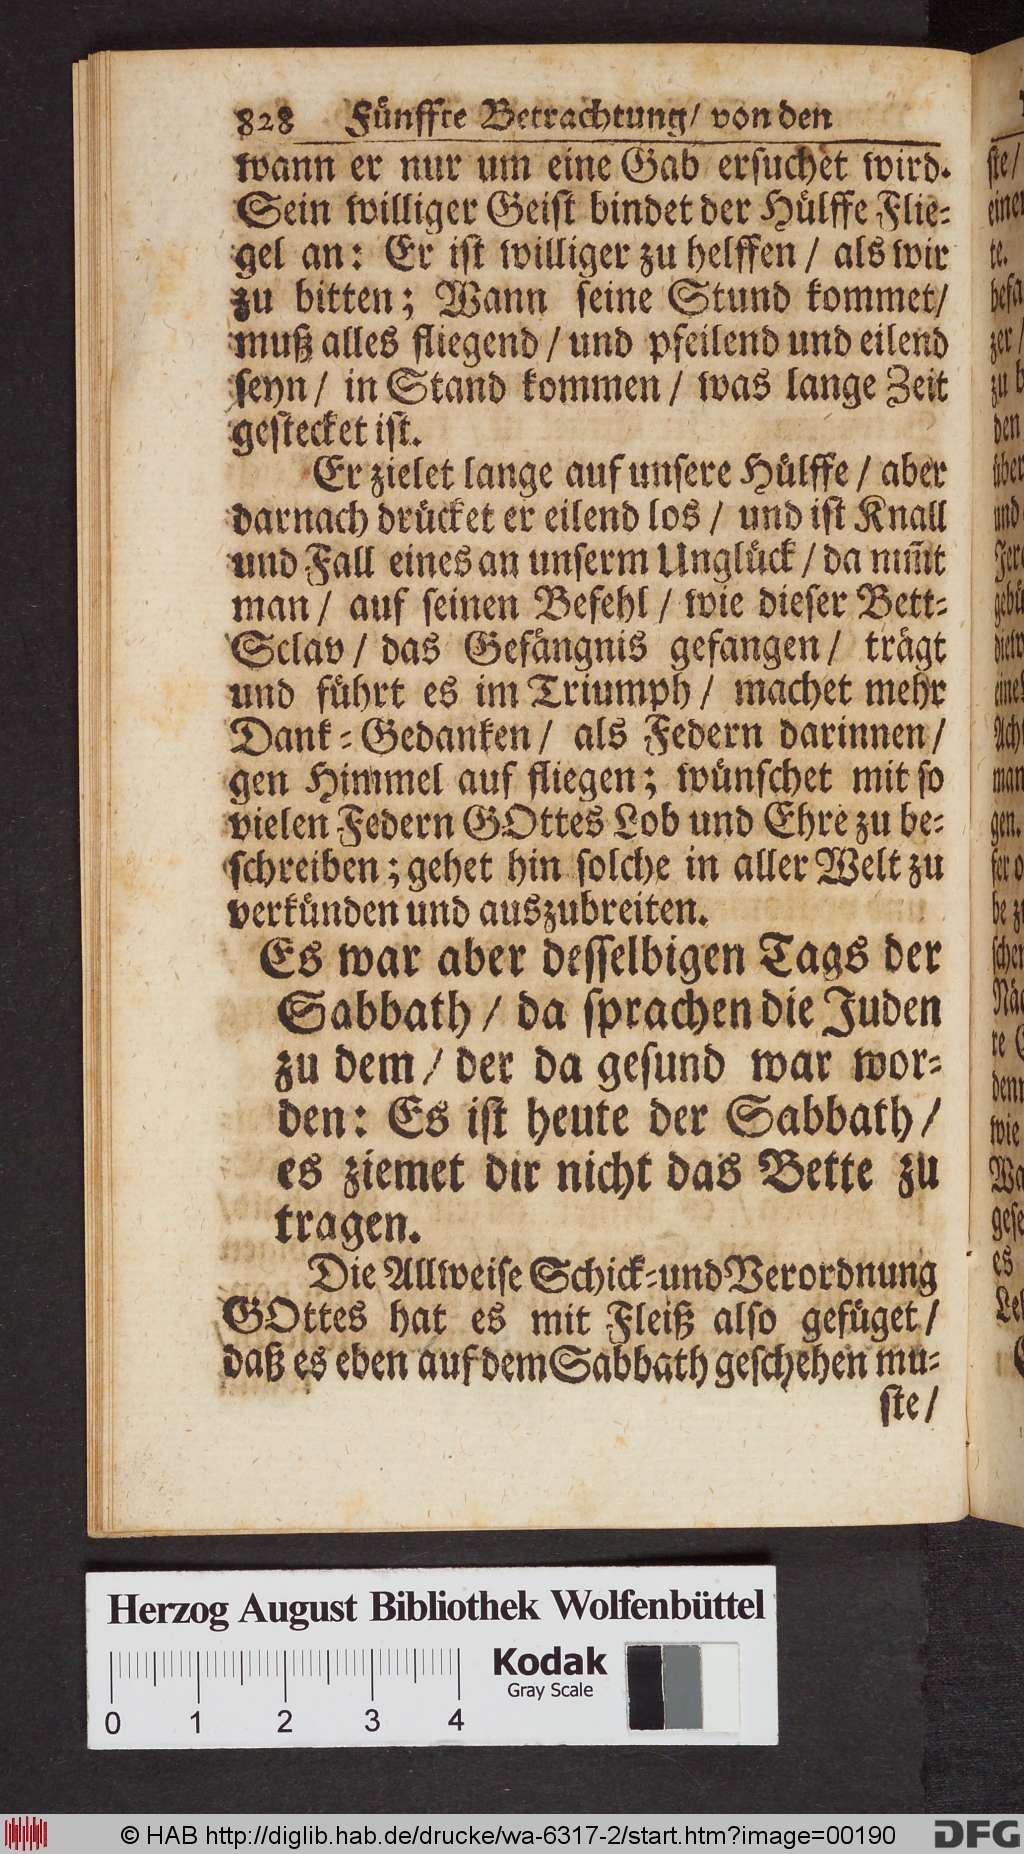 828 Fünffte Betrachtung/ von den
wann er nur um eine Gab ersuchet wird.
Sein williger Geist bindet der Hülffe Flie-
gel an: Er ist williger zu helffen / als wir
zu bitten; Wann seine Stund kommet/
muß alles fliegend / und pfeilend und eilend
seyn / in Stand kommen / was lange Zeit
gestecket ist.
Er zielet lange auf unsere Hülffe / aber
darnach drücket er eilend los / und ist Knall
und Fall eines an unserm Unglück / da nim̃t
man / auf seinen Befehl / wie dieser Bett-
Sclav / das Gefängnis gefangen / trägt
und führt es im Triumph / machet mehr
Dank-Gedanken / als Federn darinnen /
gen Himmel auf fliegen; wünschet mit so
vielen Federn GOttes Lob und Ehre zu be-
schreiben; gehet hin solche in aller Welt zu
verkünden und auszubreiten.
Es war aber desselbigen Tags der
Sabbath / da sprachen die Juden
zu dem / der da gesund war wor-
den: Es ist heute der Sabbath /
es ziemet dir nicht das Bette zu
tragen.
Die Allweise Schick-und Verordnung
GOttes hat es mit Fleiß also gefüget /
daß es eben auf dem Sabbath geschehen mu-
ste /
Herzog August Bibliothek Wolfenbüttel
Kodak
Gray Scale
0 1 2 3 4
© HAB http://diglib.hab.de/drucke/wa-6317-2/start.htm?image=00190
DFG